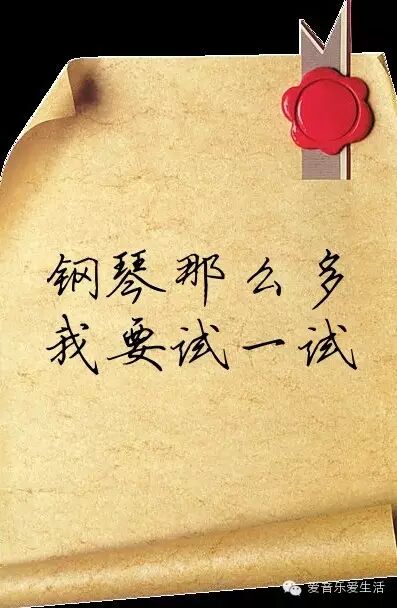 钢琴那么多
我要试一试
爱音乐爱生活